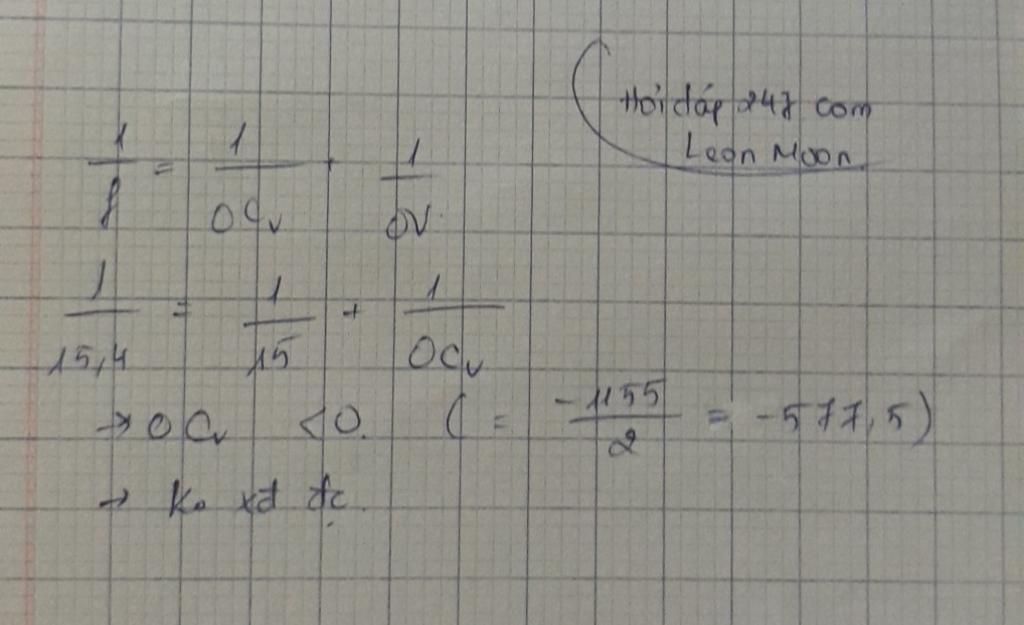 Hỏi đáp 247 com
Leon Moon
1/f = 1/OCv + 1/OV
1/15,4 = 1/15 + 1/OCv
→ OCv < 0. ( = -1155/2 = -577,5 )
→ Ko xđ đc.